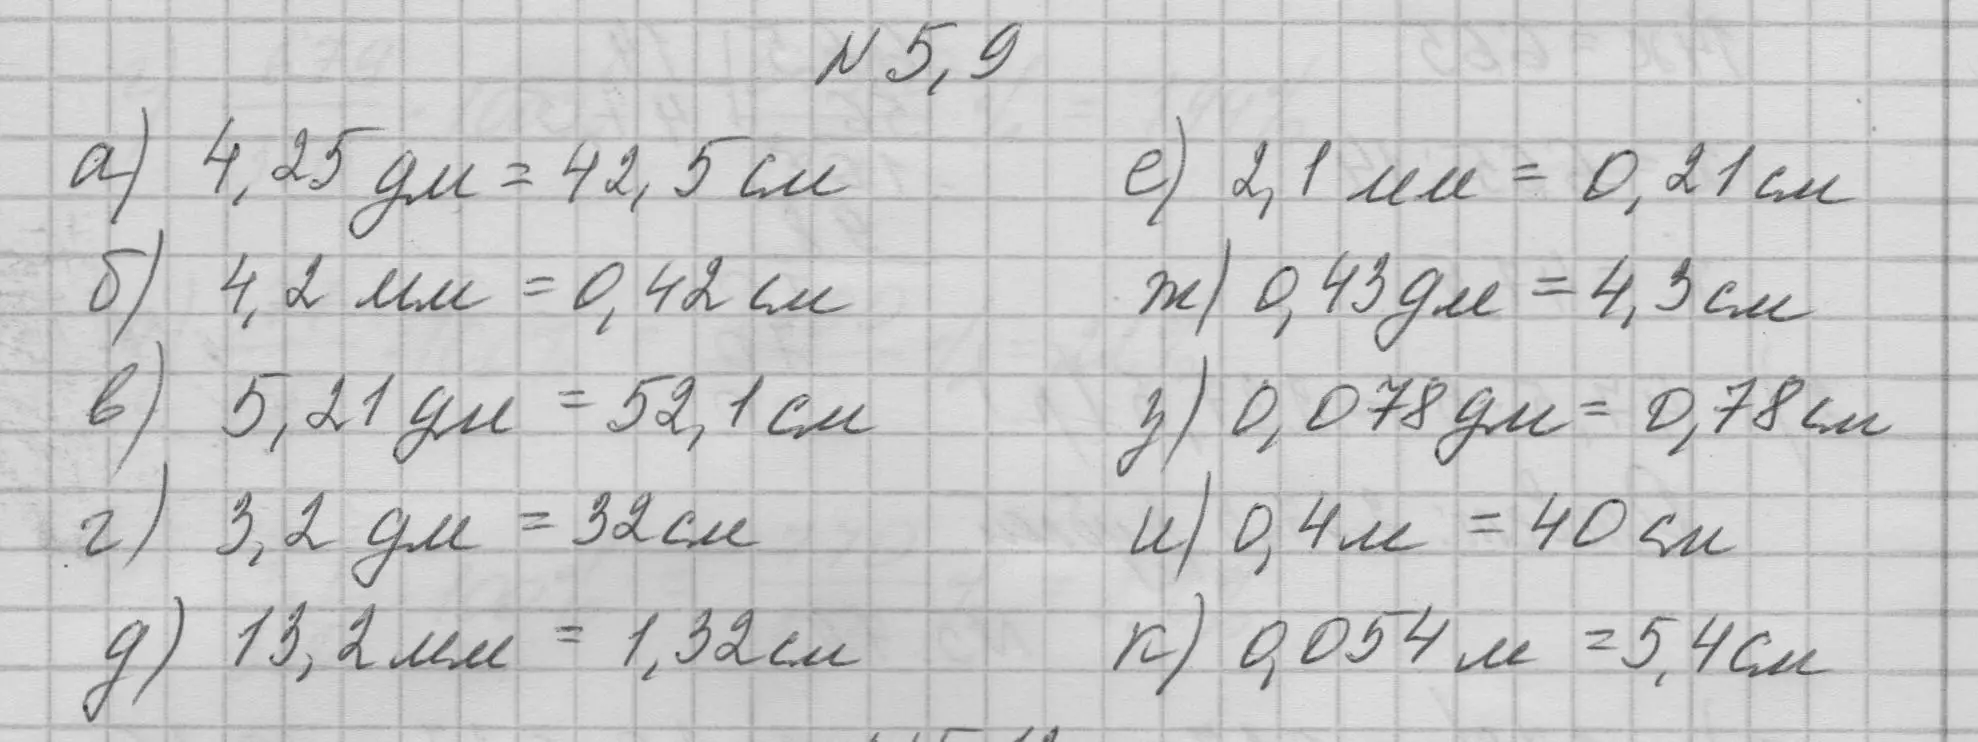 N 5,9
а) 4,25 дм = 42,5 см
б) 4,2 мм = 0,42 см
в) 5,21 дм = 52,1 см
г) 3,2 дм = 32 см
д) 13,2 мм = 1,32 см
е) 2,1 мм = 0,21 см
ж) 0,43 дм = 4,3 см
з) 0,078 дм = 0,78 см
и) 0,4 м = 40 см
к) 0,054 м = 5,4 см